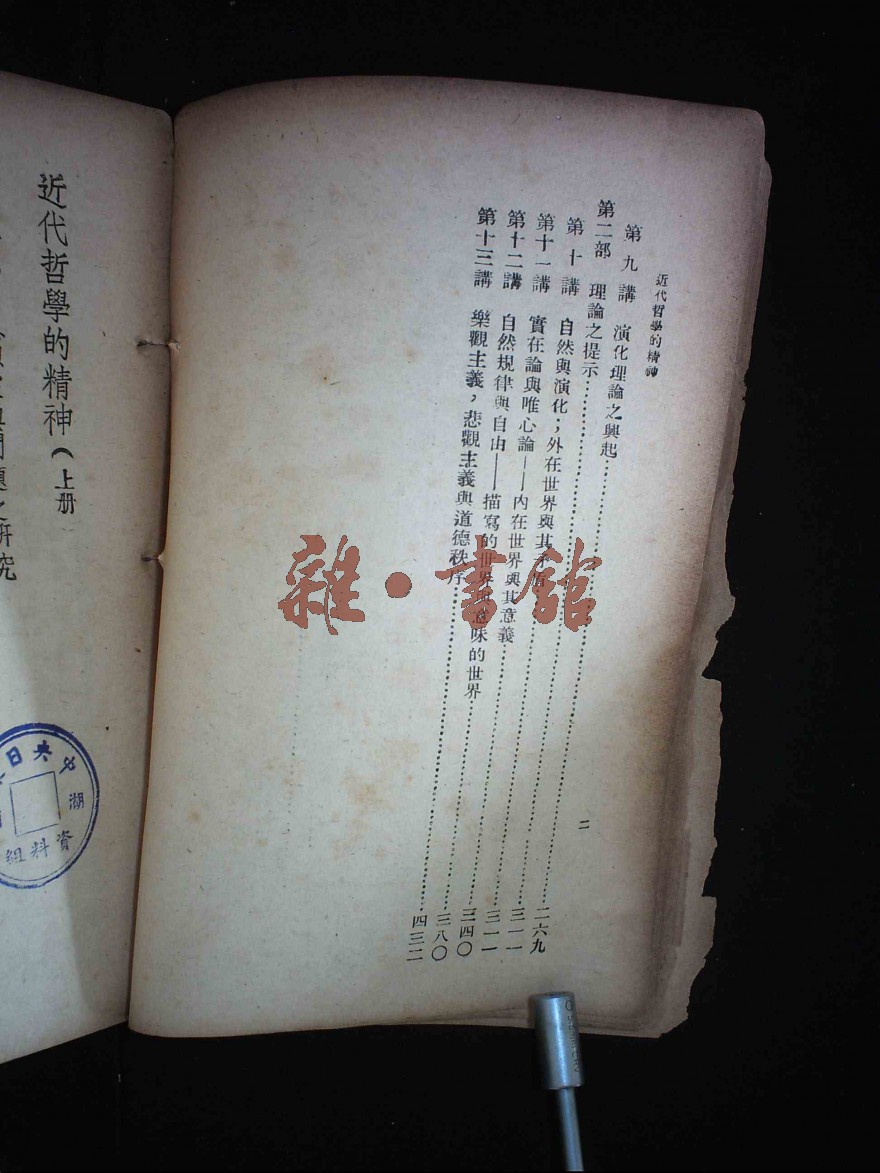 近代哲學的精神
二
第九講 演化理論之興起……二六九
第二部 理論之提示……三一一
第十講 自然與演化；外在世界與其矛盾……三一一
第十一講 實在論與唯心論——內在世界與其意義……三四〇
第十二講 自然規律與自由——描寫的世界與意味的世界……三八〇
第十三講 樂觀主義，悲觀主義與道德秩序……四三二
雜·書館
近代哲學的精神（上册
題之研究
央日
湖
資料組